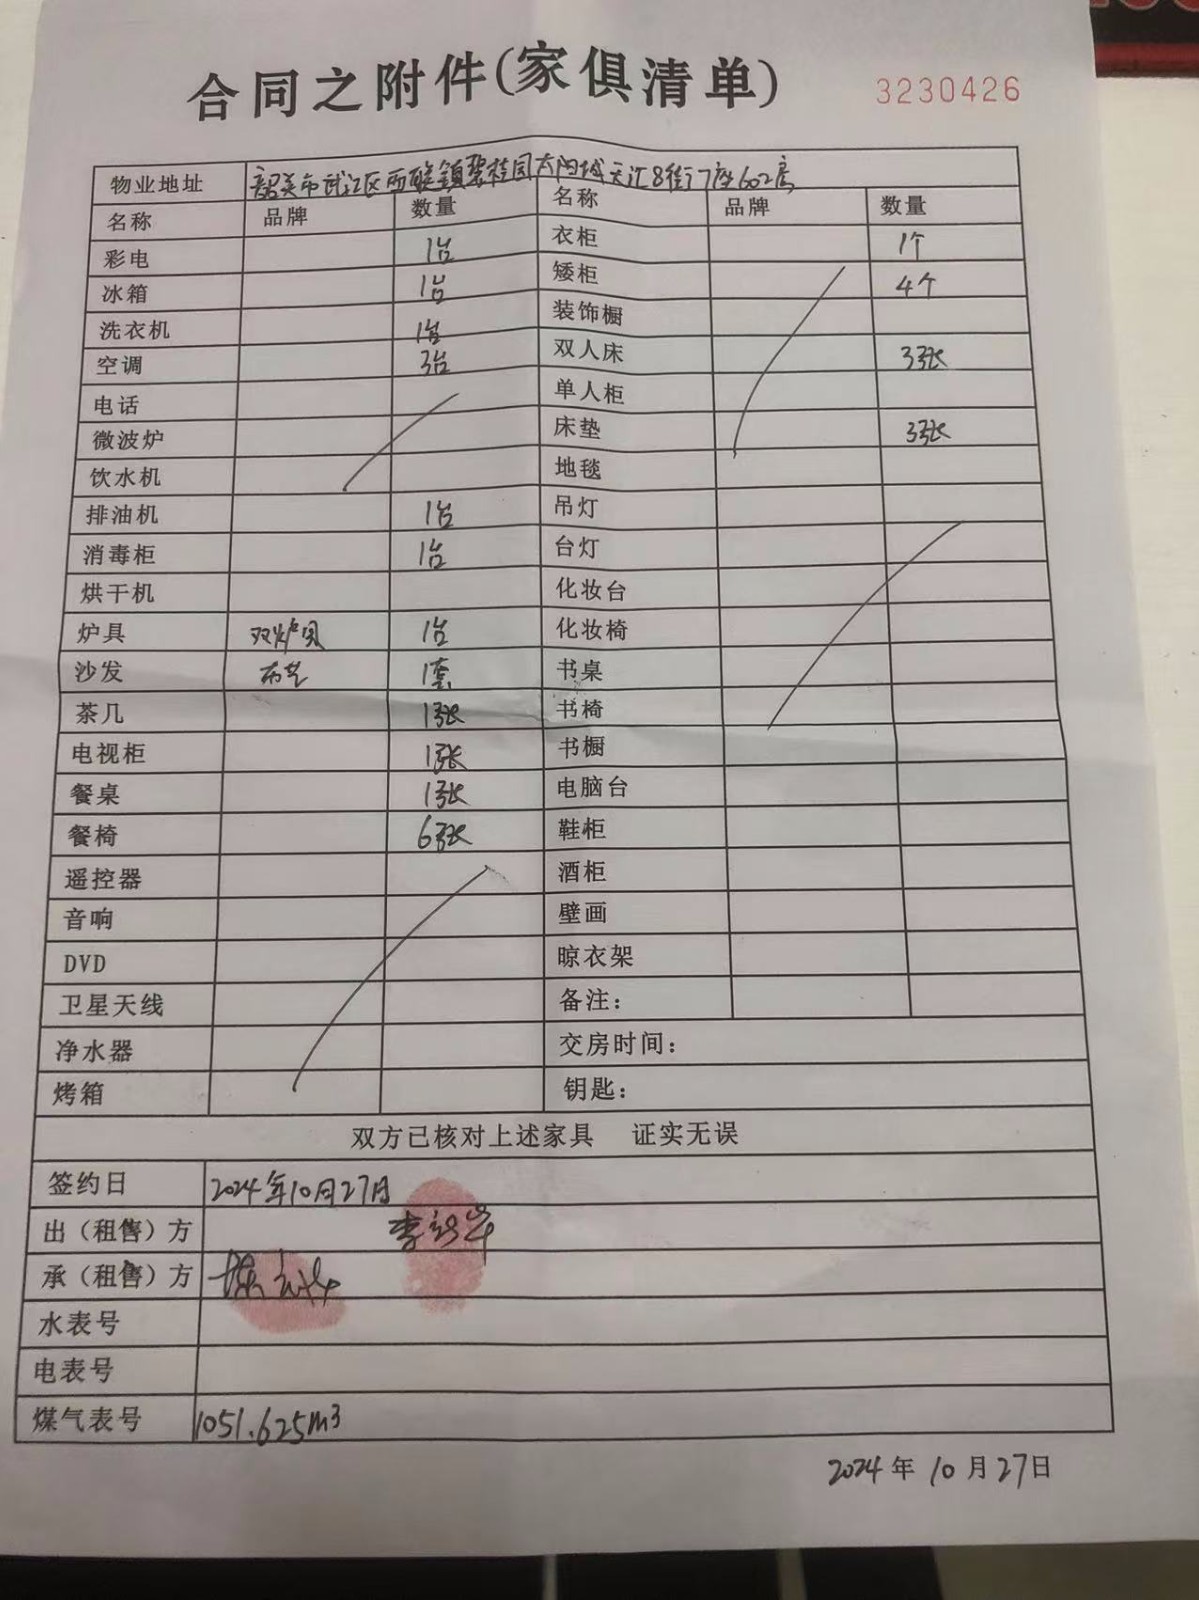 合同之附件(家俱清单) 3230426
物业地址 韶关市武江区西联鎮碧桂园太阳城天汇8街7座602房
名称 品牌 数量 名称 品牌 数量
彩电 1台 衣柜 1个
冰箱 1台 矮柜 4个
洗衣机 1台 装饰橱
空调 3台 双人床 3张
电话 单人柜
微波炉 床垫 3张
饮水机 地毯
排油机 1台 吊灯
消毒柜 1台 台灯
烘干机 化妆台
炉具 双炉具 1台 化妆椅
沙发 布艺 1套 书桌
茶几 1张 书椅
电视柜 1张 书橱
餐桌 1张 电脑台
餐椅 6张 鞋柜
遥控器 酒柜
音响 壁画
DVD 晾衣架
卫星天线 备注：
净水器 交房时间：
烤箱 钥匙：
双方已核对上述家具 证实无误
签约日 2024年10月27日
出（租售）方 李
承（租售）方
水表号
电表号
煤气表号 1051.625m3
2024年10月27日